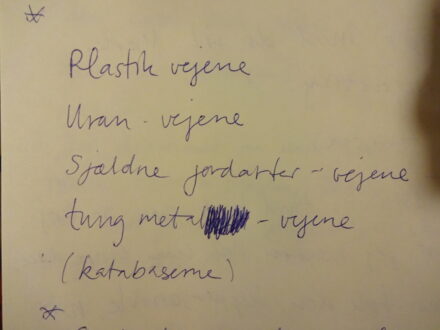 Plastik vejene
Uran - vejene
Sjældne jordarter - vejene
tung metal - vejene
(katabaserne)